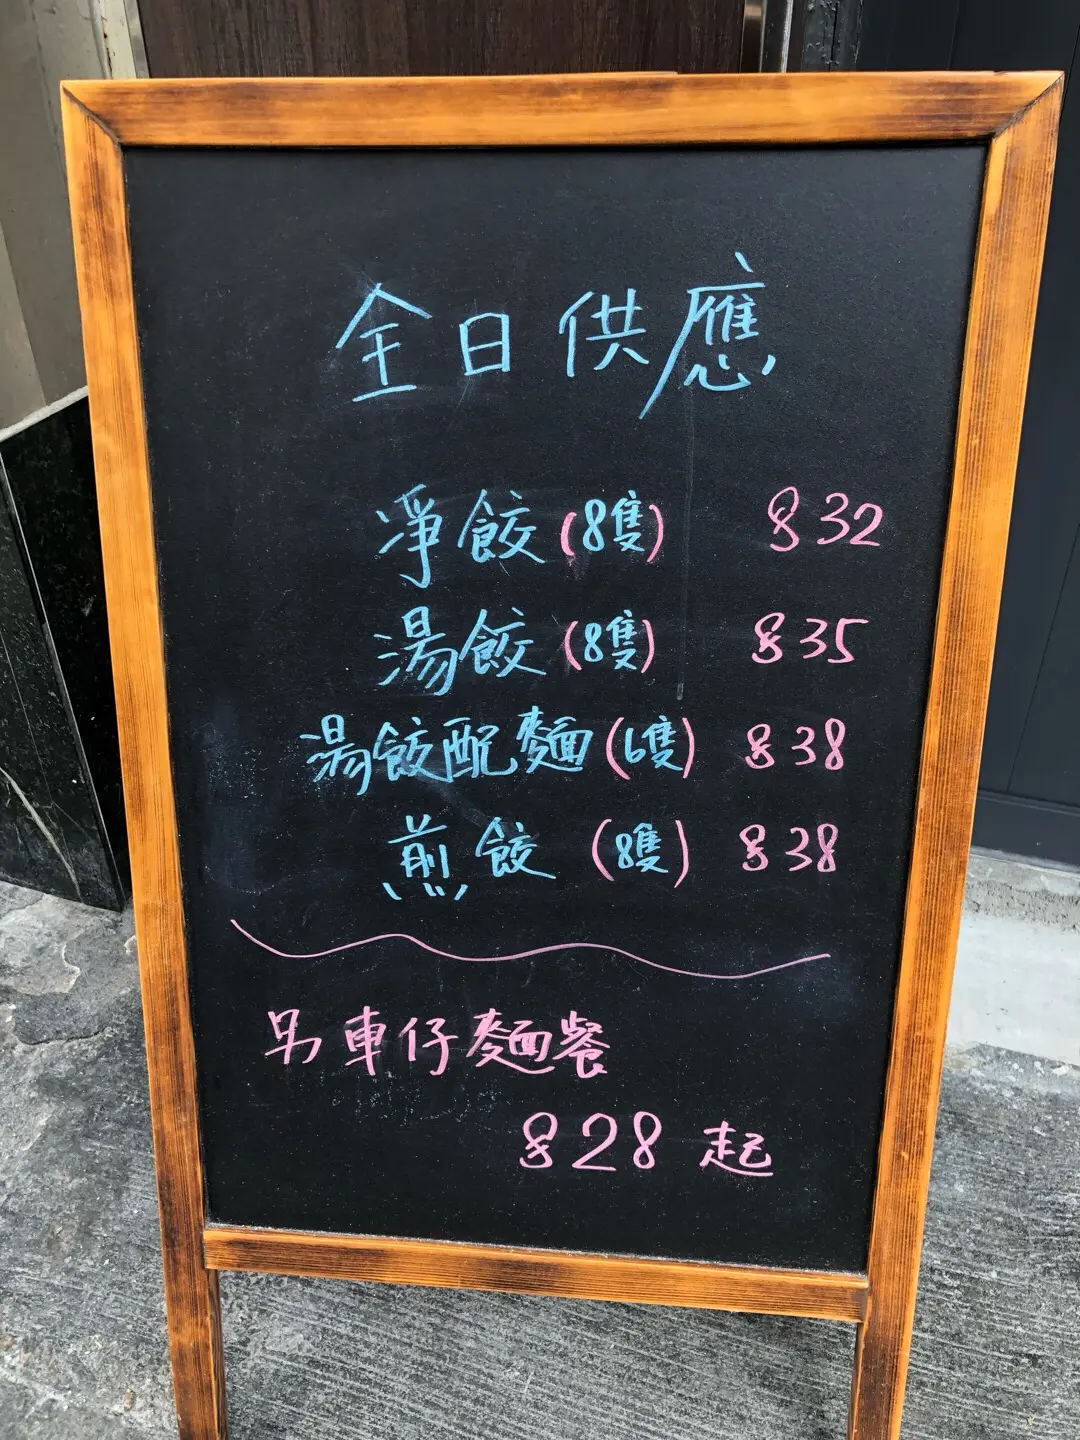 全日供應
凈餃(8隻) $32
湯餃(8隻) $35
湯餃配麵(6隻) $38
煎餃 (8隻) $38
另車仔麵餐
$28 起